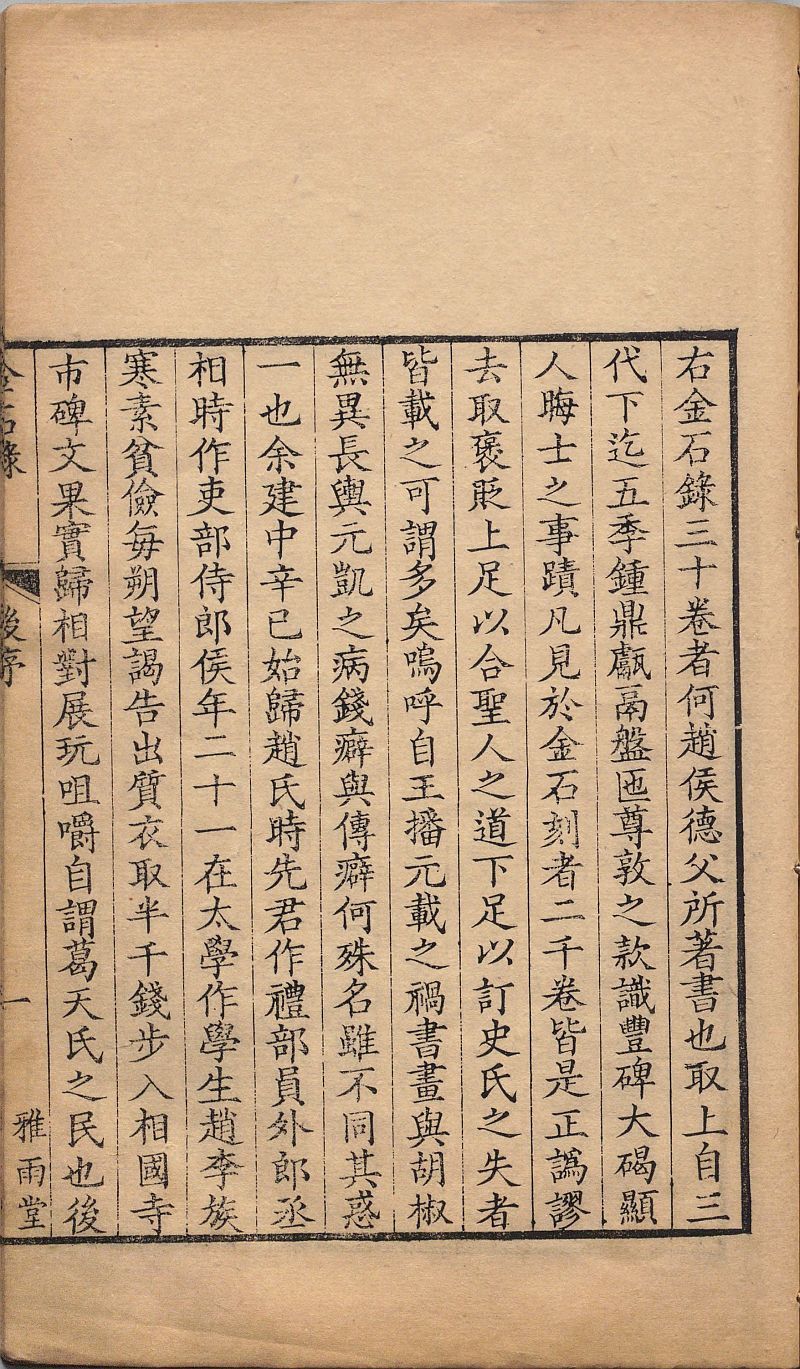 右金石錄三十卷者何趙侯德父所著書也取上自三
代下迄五季鍾鼎甗鬲盤匜尊敦之款識豐碑大碣顯
人晦士之事蹟凡見於金石刻者二千卷皆是正譌謬
去取褒貶上足以合聖人之道下足以訂史氏之失者
皆載之可謂多矣嗚呼自王播元載之禍書畫與胡椒
無異長輿元凱之病錢癖與傳癖何殊名雖不同其惑
一也余建中辛巳始歸趙氏時先君作禮部員外郎丞
相時作吏部侍郎侯年二十一在太學作學生趙李族
寒素貧儉每朔望謁告出質衣取半千錢步入相國寺
市碑文果實歸相對展玩咀嚼自謂葛天氏之民也後
金石錄 後序 一 雅雨堂